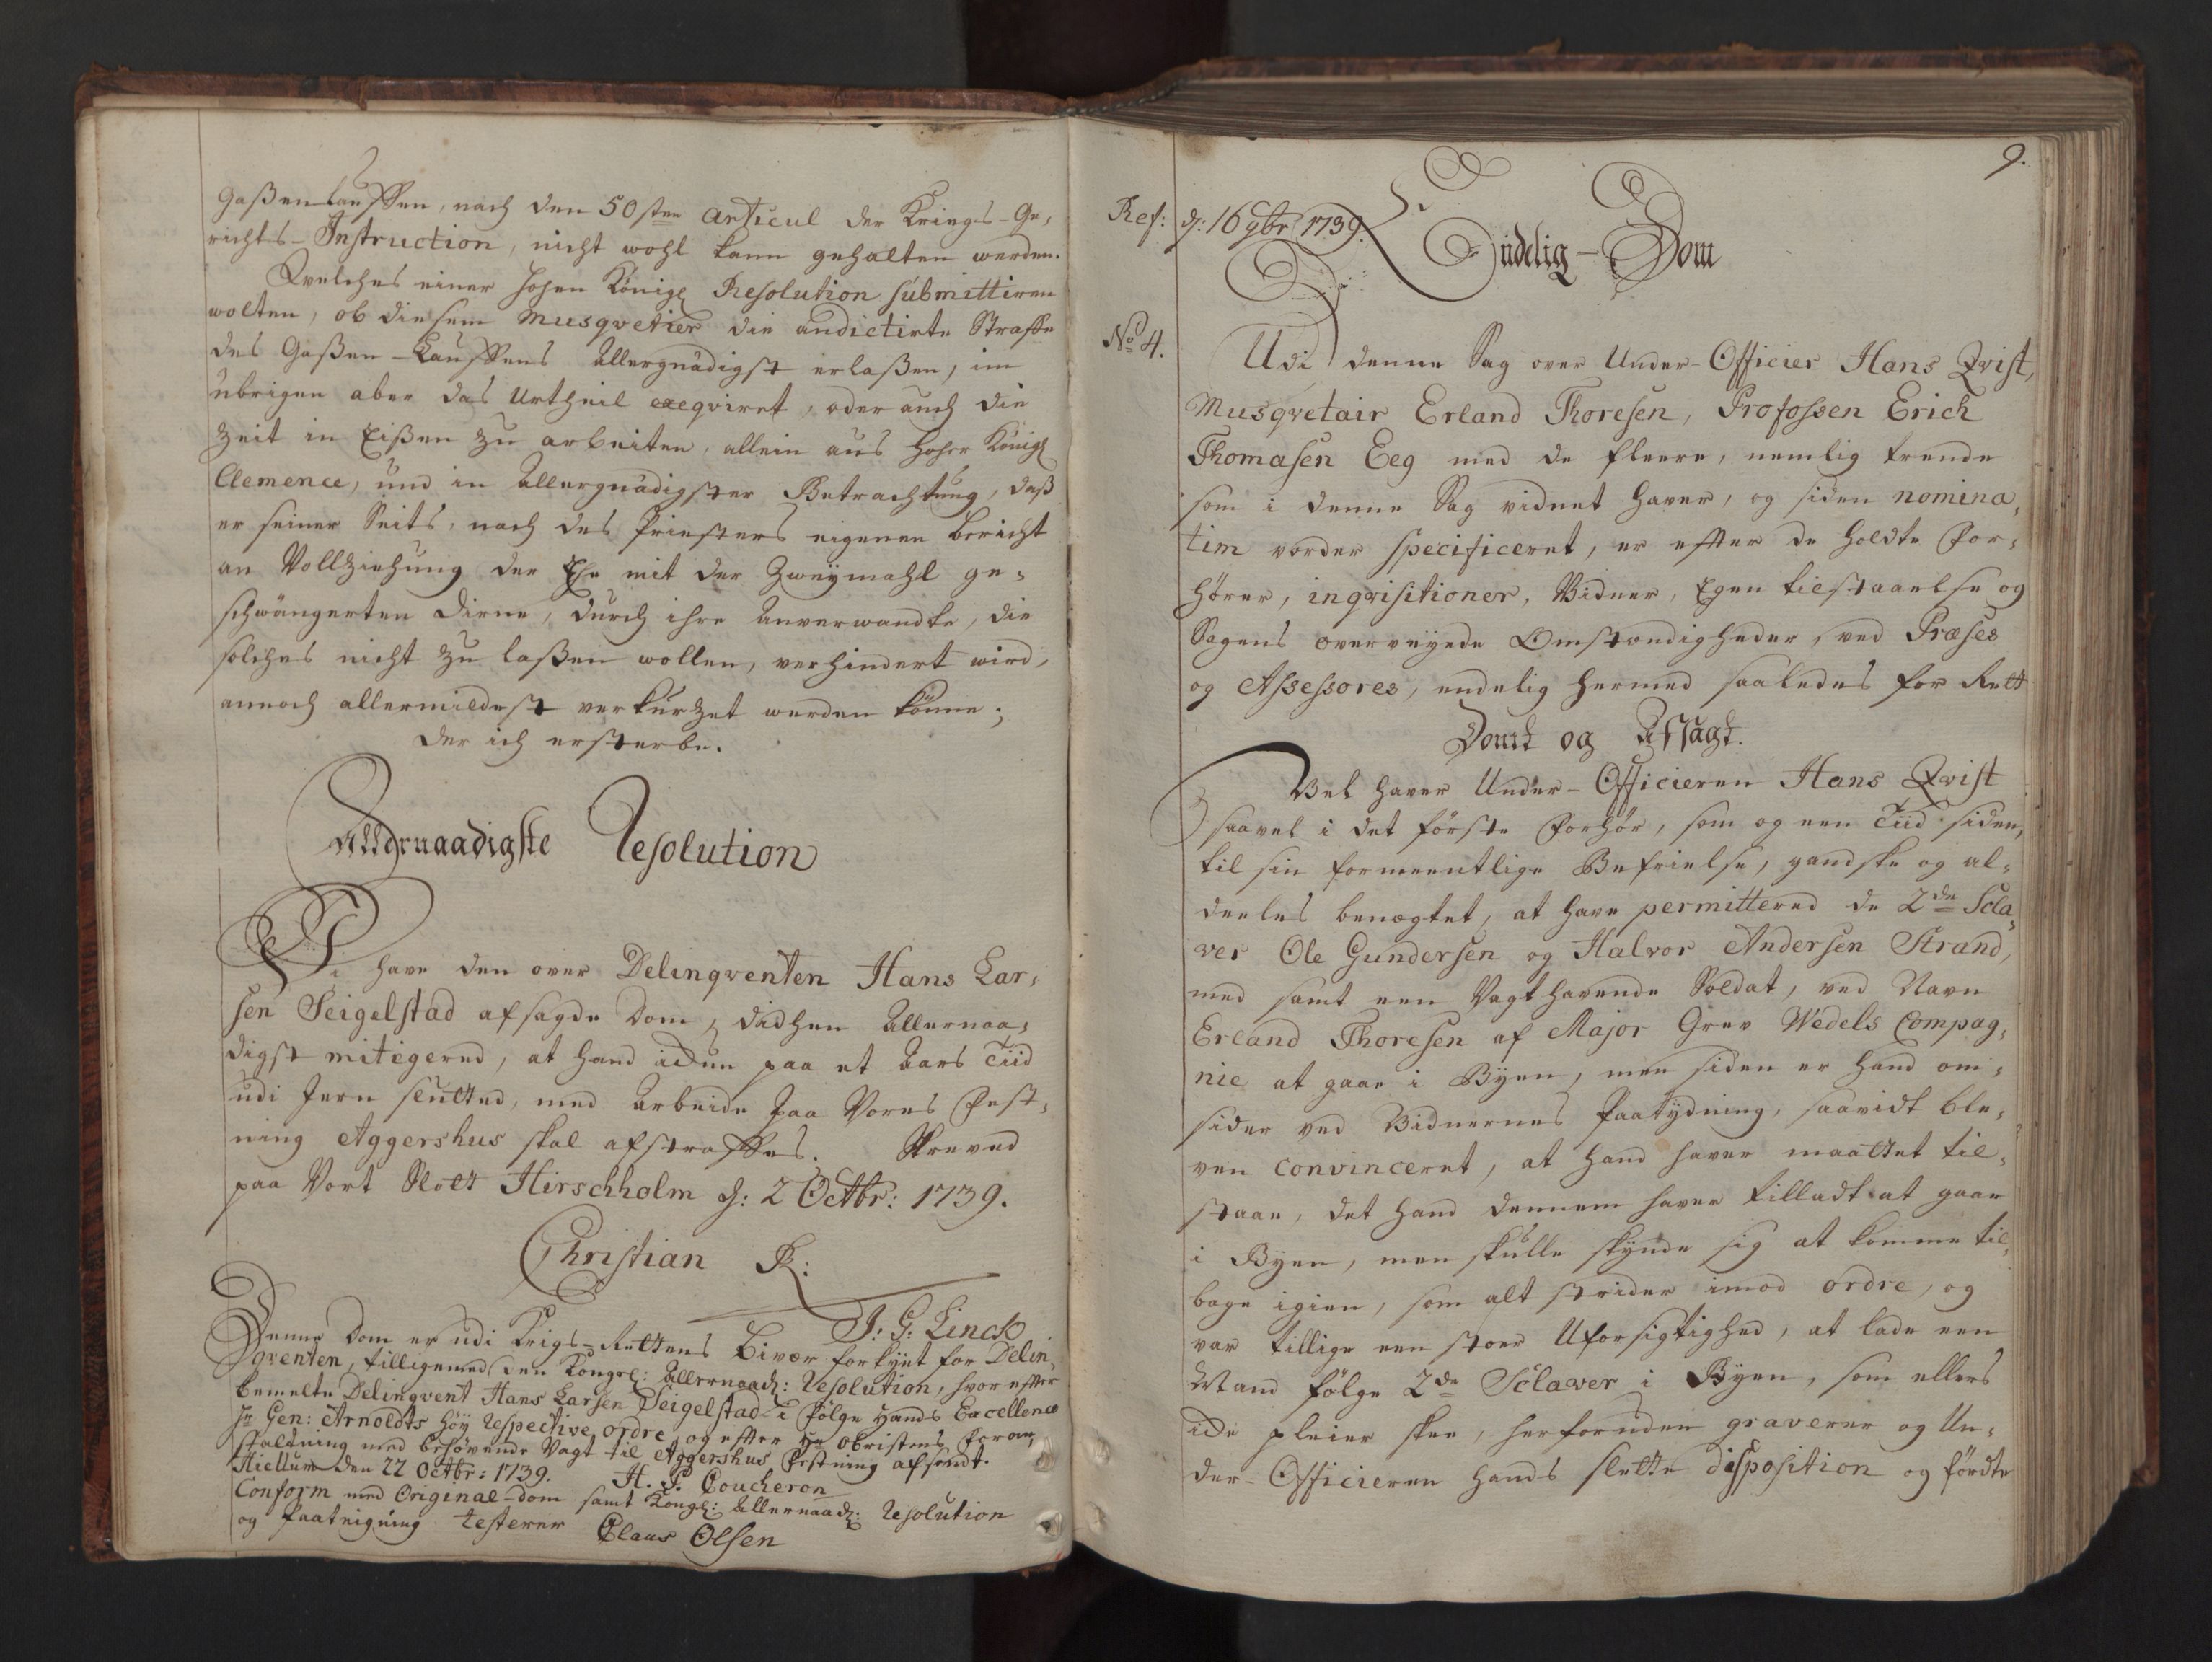 Gaßen-Lauffen, nach den 50sten Articul der Kriegs-Ge,
richts-Instruction, nicht wohl kann gehalten werden.
Welches einer hohen Königl Resolution submittiren
wolten, ob diesem Musqvetier die andictirte Straffe
des Gaßen-Lauffens Allergnädigst erlaßen, im
übrigen aber das Urtheil exeqviret, oder auch die
Zeit in Eißen zu arbeiten, allein aus hoher Königl
Clemence, und in Allergnädigster Betrachtung, daß
er seiner Seits, nach des Priesters eigenen Bericht
an Vollziehung der Ehe mit der Zweymahl ge=
schwängerten Dirne, durch ihre Anverwandte, die
solches nicht zu laßen wollen, verhindert wird,
annoch allermildest verkürzet werden könne;
der ich ersterbe.
Allernaadigste Resolution
Vi have den over Delinqventen Hans Lar,
sen Seigelstad afsagde Dom, didhen Allernaa,
digst mitigered, at hand ickun paa et Aars Tiid
udi Jern slutted, med Arbeide paa Vores Fest,
ning Aggershus skal afstraffes. Skreved
paa Vort Slott Hirschholm d: 2 Octbr: 1739.
Christian R:
J: G: Linck
Denne Dom er udi Krigs-Rettens Bivær forkynt for Delin,
qventen, tilligemed den Kongel: Allernaad: Resolution, hvorefter
bemelte Delinqvent Hans Larsen Seigelstad i følge Hands Excellence
Hr Gen: Arnoldts höy respective ordre, og efter Hr Obristens foran,
staltning med behövende Vagt til Aggershus Festning afsendt.
Hiellum den 22 Octbr: 1739. H. J. Coucheron
Conform med Original-dom samt Kongl: Allernaad: Resolution
og Paategning testerer Claus Olsen
9.
Ref: d: 16 9br 1739.
Endelig-Dom
No 4.
Udi denne Sag over Under-Officier Hans Qvist,
Musqvetair Erland Thoresen, Profossen Erich
Thomasen Eeg med de fleere, nemlig trende
som i denne Sag vidnet haver, og siden nomina,
tim vorder specificeret, er efter de holdte For,
hörer, inqvisitioner, Vidner, Egen tilstaaelse og
Sagens overveyede Omstændigheder, ved Præses
og Assessores, endelig hermed saaledes for Rett
Dömt og Afsagt.
Vel haver Under-Officieren Hans Qvist
saavel i det förste Forhör, som og een Tiid siden,
til sin formeentlige Befrielse, gandske og al=
deeles benægtet, at have permittered de 2de Scla,
ver Ole Gundersen og Halvor Andersen Strand,
med samt een Vagthavende Soldat, ved Navn
Erland Thoresen af Major Grev Wedels Compag,
nie at gaae i Byen, men siden er hand om,
sider ved Vidnernes Paatydning, saavidt ble,
ven convinceret, at hand haver maattet til,
staae, det hand dennem haver tilladt at gaae
i Byen, men skulle skynde sig at komme til,
bage igien, som alt strider imod ordre, og
var tillige een stoer Uforsigtighed, at lade een
Mand fölge 2de Sclaver i Byen, som ellers
icke pleier skee, herforuden graverer og Un,
der-Officieren hands slette disposition og fördte